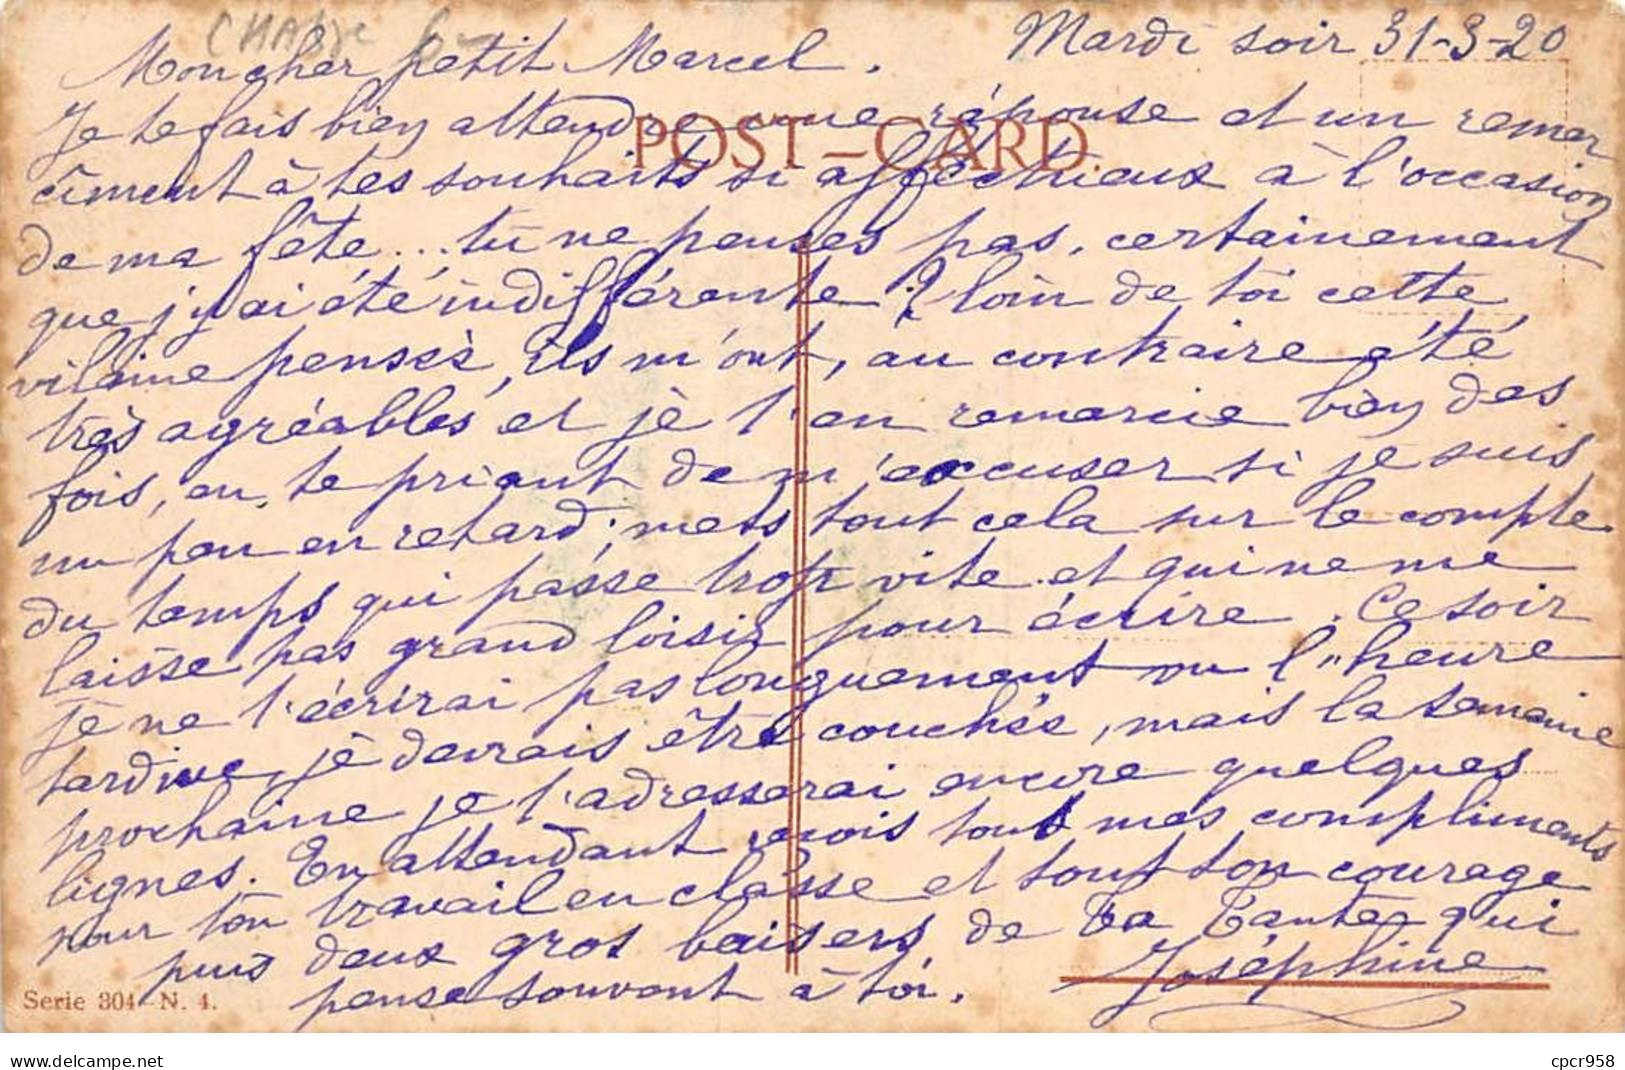 Mardi soir 31-3-20
Mon cher petit Marcel.
Je te fais bien attendre une réponse et un remer
cîment à tes souhaits si affectueux à l'occasion
de ma fête... tu ne penses pas, certainement
que j'y ai été indifférente ? loin de toi cette
vilaine pensés, ils m'ont, au contraire été
très agréables et je t'en remercie bien des
fois, en te priant de m'excuser si je suis
un peu en retard; mets tout cela sur le compte
du temps qui passe trop vite et qui ne me
laisse pas grand loisir pour écrire. Ce soir
je ne t'écrirai pas longuement vu l'heure
tardive, je devrais être couchée, mais la semaine
prochaine je t'adresserai encore quelques
lignes. En attendant, reçois tous mes compliments
pour ton travail en classe et tout ton courage
puis deux gros baisers de ta Tante qui
pense souvent à toi. Joséphine
POST-CARD.
Serie 304 - N. 4.
cpcr958